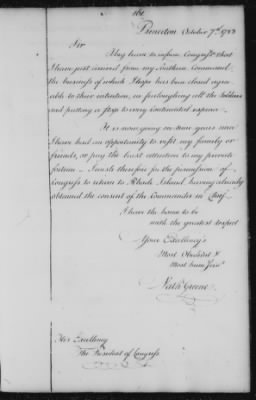 161
Princeton October 7th 1783
Sir
I beg leave to inform Congress that
I have just arrived from my Southern Command,
the business of which I hope has been closed agree-
able to their intention, in furloughing all the Soldiers
and putting a stop to every Continental expence.
It is now going on nine years since
I have had an opportunity to visit my family or
friends, or pay the least attention to my private
fortune. I wish therefore for the permission of
Congress to return to Rhode Island, having already
obtained the consent of the Commander in Chief.
I have the honor to be
with the greatest respect
Your Excellency's
Most Obedient &
Most hum Servt
Nath Greene.
His Excellency
The President of Congress